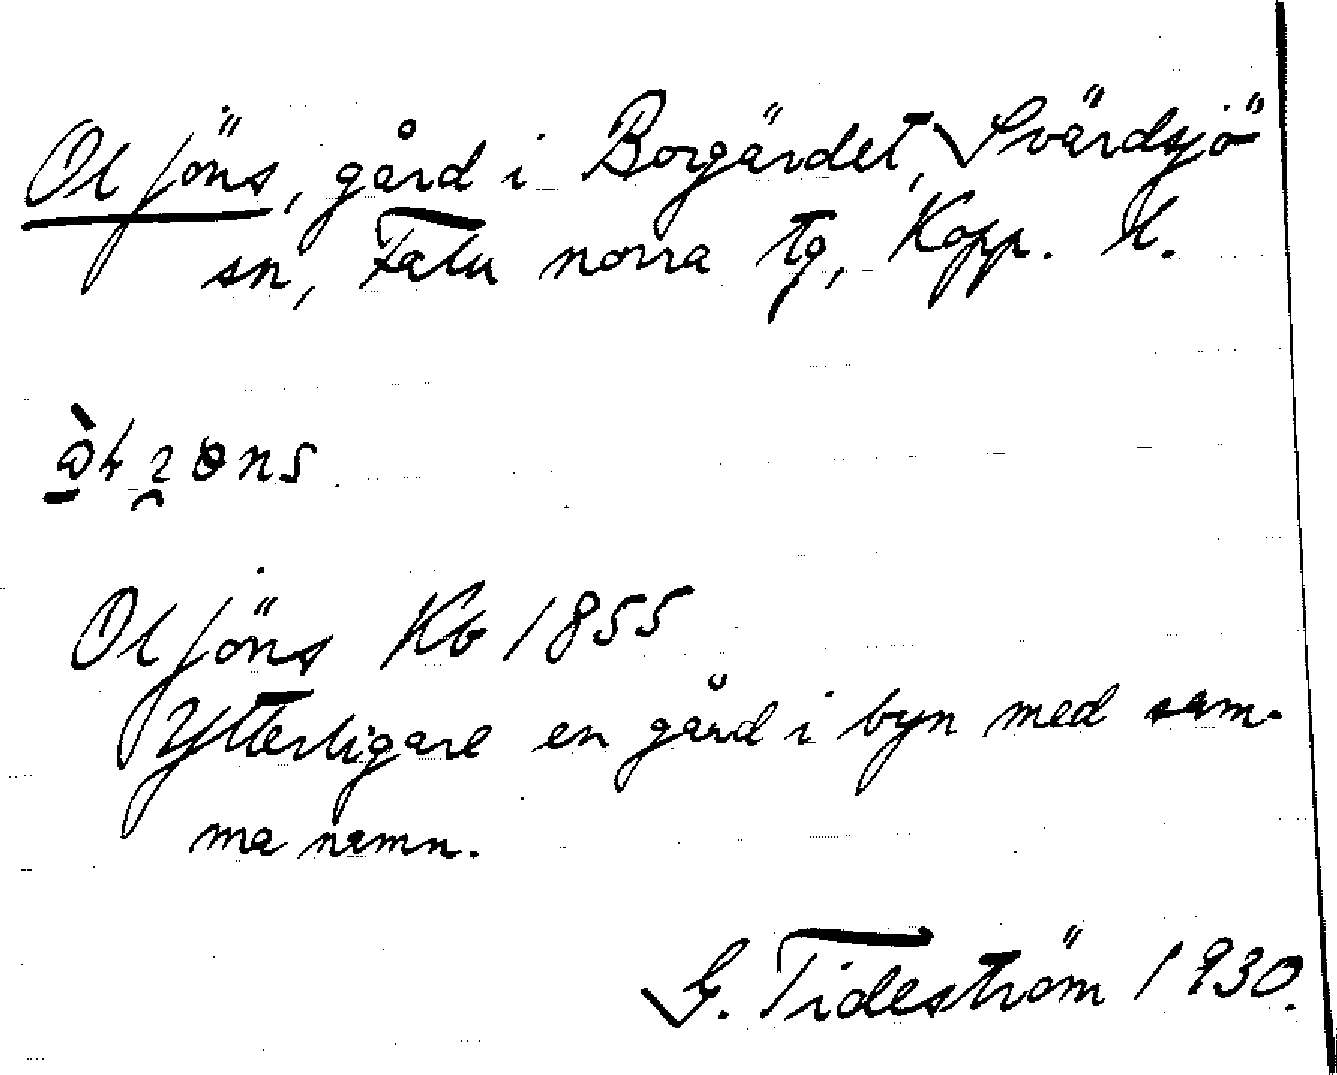 Ol Jöns, gård i Borgärdet, Svärdsjö
sn, Falu norra tg, Kopp. l.
Ol Jöns Kb 1855
Ytterligare en gård i byn med sam-
ma namn.
G. Tideström 1930.